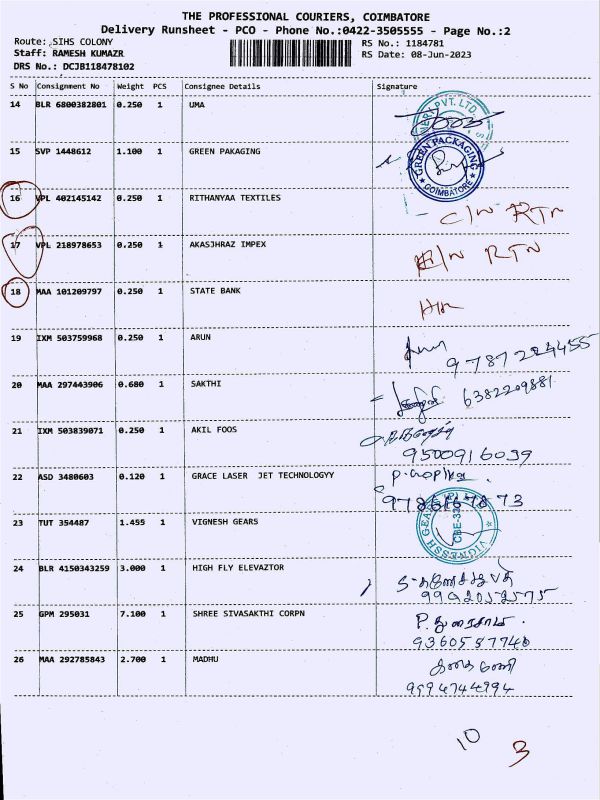 THE PROFESSIONAL COURIERS, COIMBATORE
Delivery Runsheet - PCO - Phone No.:0422-3505555 - Page No.:2
Route: SIHS COLONY
RS No.: 1184781
Staff: RAMESH KUMAZR
RS Date: 08-Jun-2023
DRS No.: DCJB118478102
S No Consignment No Weight PCS Consignee Details Signature
14 BLR 6800382801 0.250 1 UMA
15 SVP 1448612 1.100 1 GREEN PAKAGING
GREEN PACKAGING COIMBATORE
16 VPL 402145142 0.250 1 RITHANYAA TEXTILES - C/W RTN
17 VPL 218978653 0.250 1 AKASJHRAZ IMPEX RTN
18 MAA 101209797 0.250 1 STATE BANK
19 IXM 503759968 0.250 1 ARUN
20 MAA 297443906 0.680 1 SAKTHI 6382209881
21 IXM 503839071 0.250 1 AKIL FOOS
9500916039
22 ASD 3480603 0.120 1 GRACE LASER JET TECHNOLOGYY
23 TUT 354487 1.455 1 VIGNESH GEARS
24 BLR 4150343259 3.000 1 HIGH FLY ELEVAZTOR
25 GPM 295031 7.100 1 SHREE SIVASAKTHI CORPN
9360557746
26 MAA 292785843 2.700 1 MADHU
9994744994
10 3